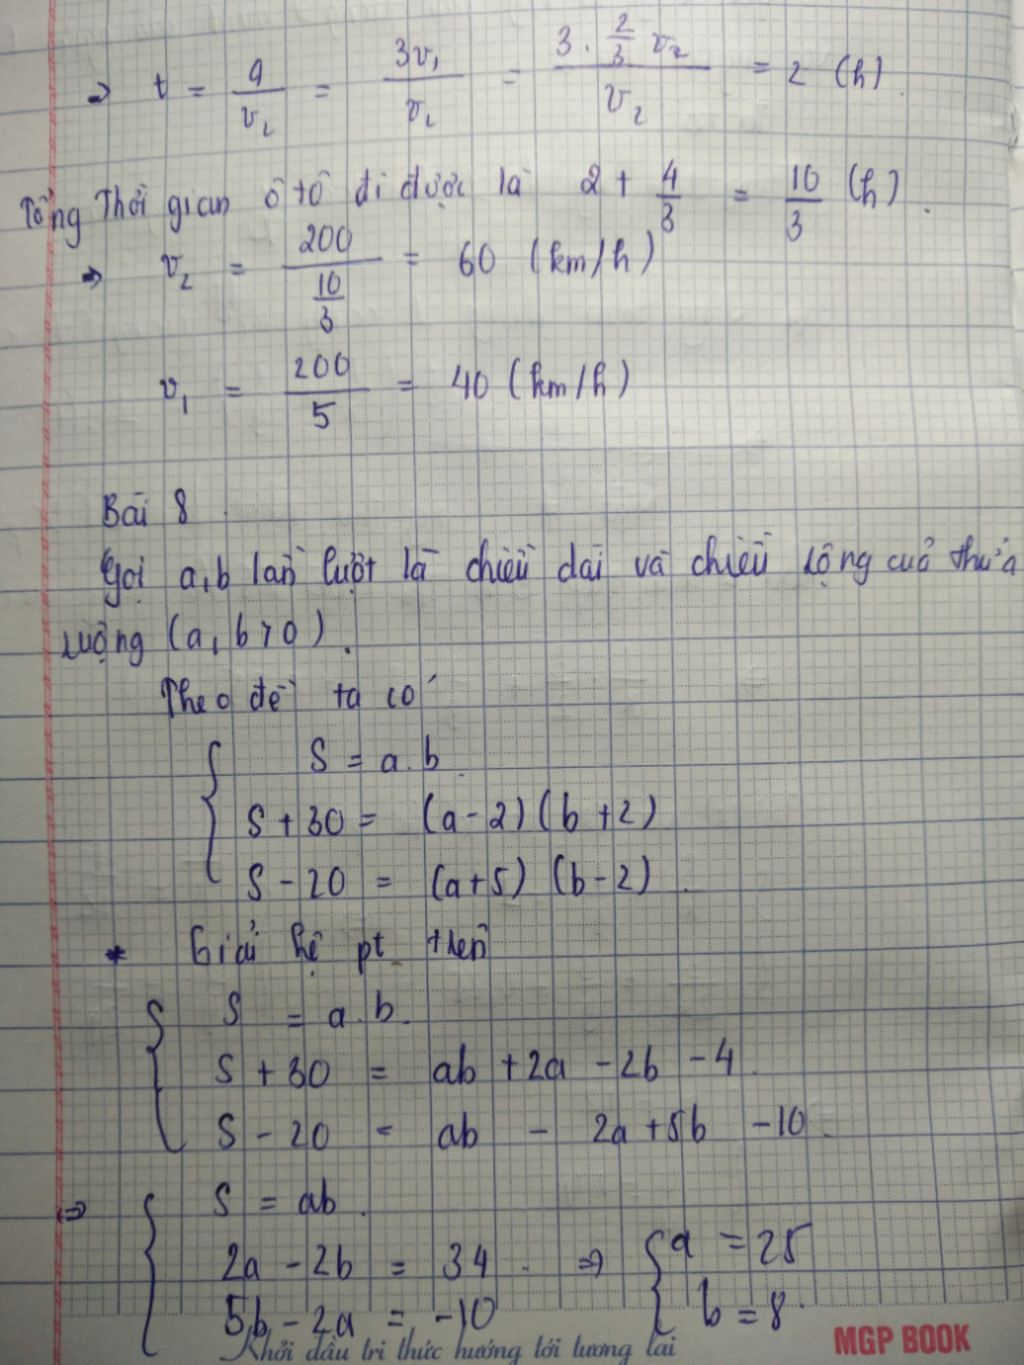 ⇒ t = a/v₂ = 3v₁/v₂ = (3 · 2/3 v₂)/v₂ = 2 (h).
Tổng Thời gian ô tô đi được là 2 + 4/3 = 10/3 (h).
⇒ v₂ = 200/(10/3) = 60 (km/h)
v₁ = 200/5 = 40 (km/h)
Bài 8
Gọi a, b lần lượt là chiều dài và chiều rộng của thửa
ruộng (a, b > 0).
Theo đề ta có
{ S = a.b
S + 30 = (a - 2)(b + 2)
S - 20 = (a + 5)(b - 2).
* Giải hệ pt trên
{ S = a.b.
S + 30 = ab + 2a - 2b - 4.
S - 20 = ab - 2a + 5b - 10.
⇒ { S = ab.
2a - 2b = 34. ⇒ { a = 25
5b - 2a = -10 b = 8.
Khởi đầu tri thức hướng tới tương lai MGP BOOK